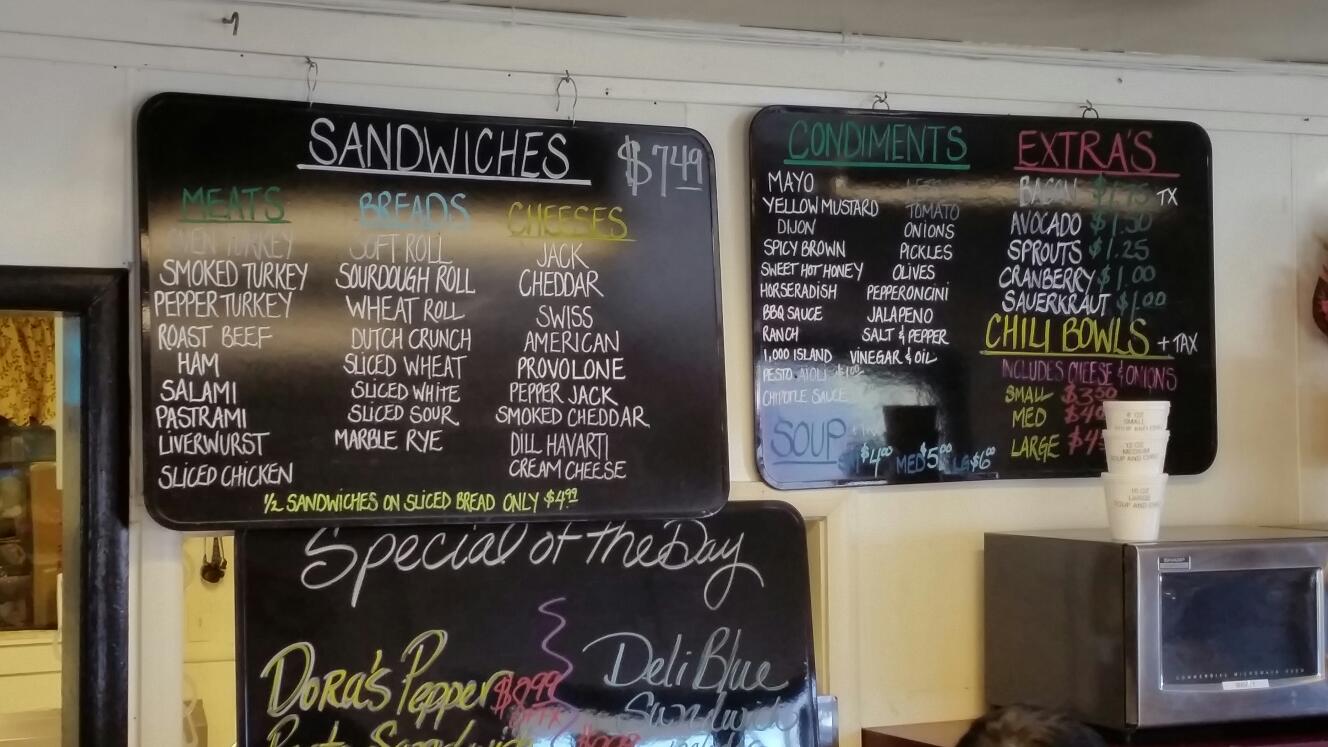 SANDWICHES
$7.49
MEATS
OVEN TURKEY
SMOKED TURKEY
PEPPER TURKEY
ROAST BEEF
HAM
SALAMI
PASTRAMI
LIVERWURST
SLICED CHICKEN
BREADS
SOFT ROLL
SOURDOUGH ROLL
WHEAT ROLL
DUTCH CRUNCH
SLICED WHEAT
SLICED WHITE
SLICED SOUR
MARBLE RYE
CHEESES
JACK
CHEDDAR
SWISS
AMERICAN
PROVOLONE
PEPPER JACK
SMOKED CHEDDAR
DILL HAVARTI
CREAM CHEESE
1/2 SANDWICHES ON SLICED BREAD ONLY $4.99
CONDIMENTS
MAYO
YELLOW MUSTARD
DIJON
SPICY BROWN
SWEET HOT HONEY
HORSERADISH
BBQ SAUCE
RANCH
1,000 ISLAND
PESTO AIOLI
CHIPOTLE SAUCE
TOMATO
ONIONS
PICKLES
OLIVES
PEPPERONCINI
JALAPENO
SALT & PEPPER
VINEGAR & OIL
SOUP
$4.00 MED $5.00 LG $6.00
EXTRA'S
BACON $1.75 TX
AVOCADO $1.50
SPROUTS $1.25
CRANBERRY $1.00
SAUERKRAUT $1.00
CHILI BOWLS + TAX
INCLUDES CHEESE & ONIONS
SMALL $3.50
MED
LARGE
Special of the Day
Dora's Pepper $8.99
Deli Blue
Sandwich
8 OZ
SMALL
12 OZ
MEDIUM
SOUP AND
16 OZ
LARGE
SOUP AND
SHARP
COMMERCIAL MICROWAVE OVEN